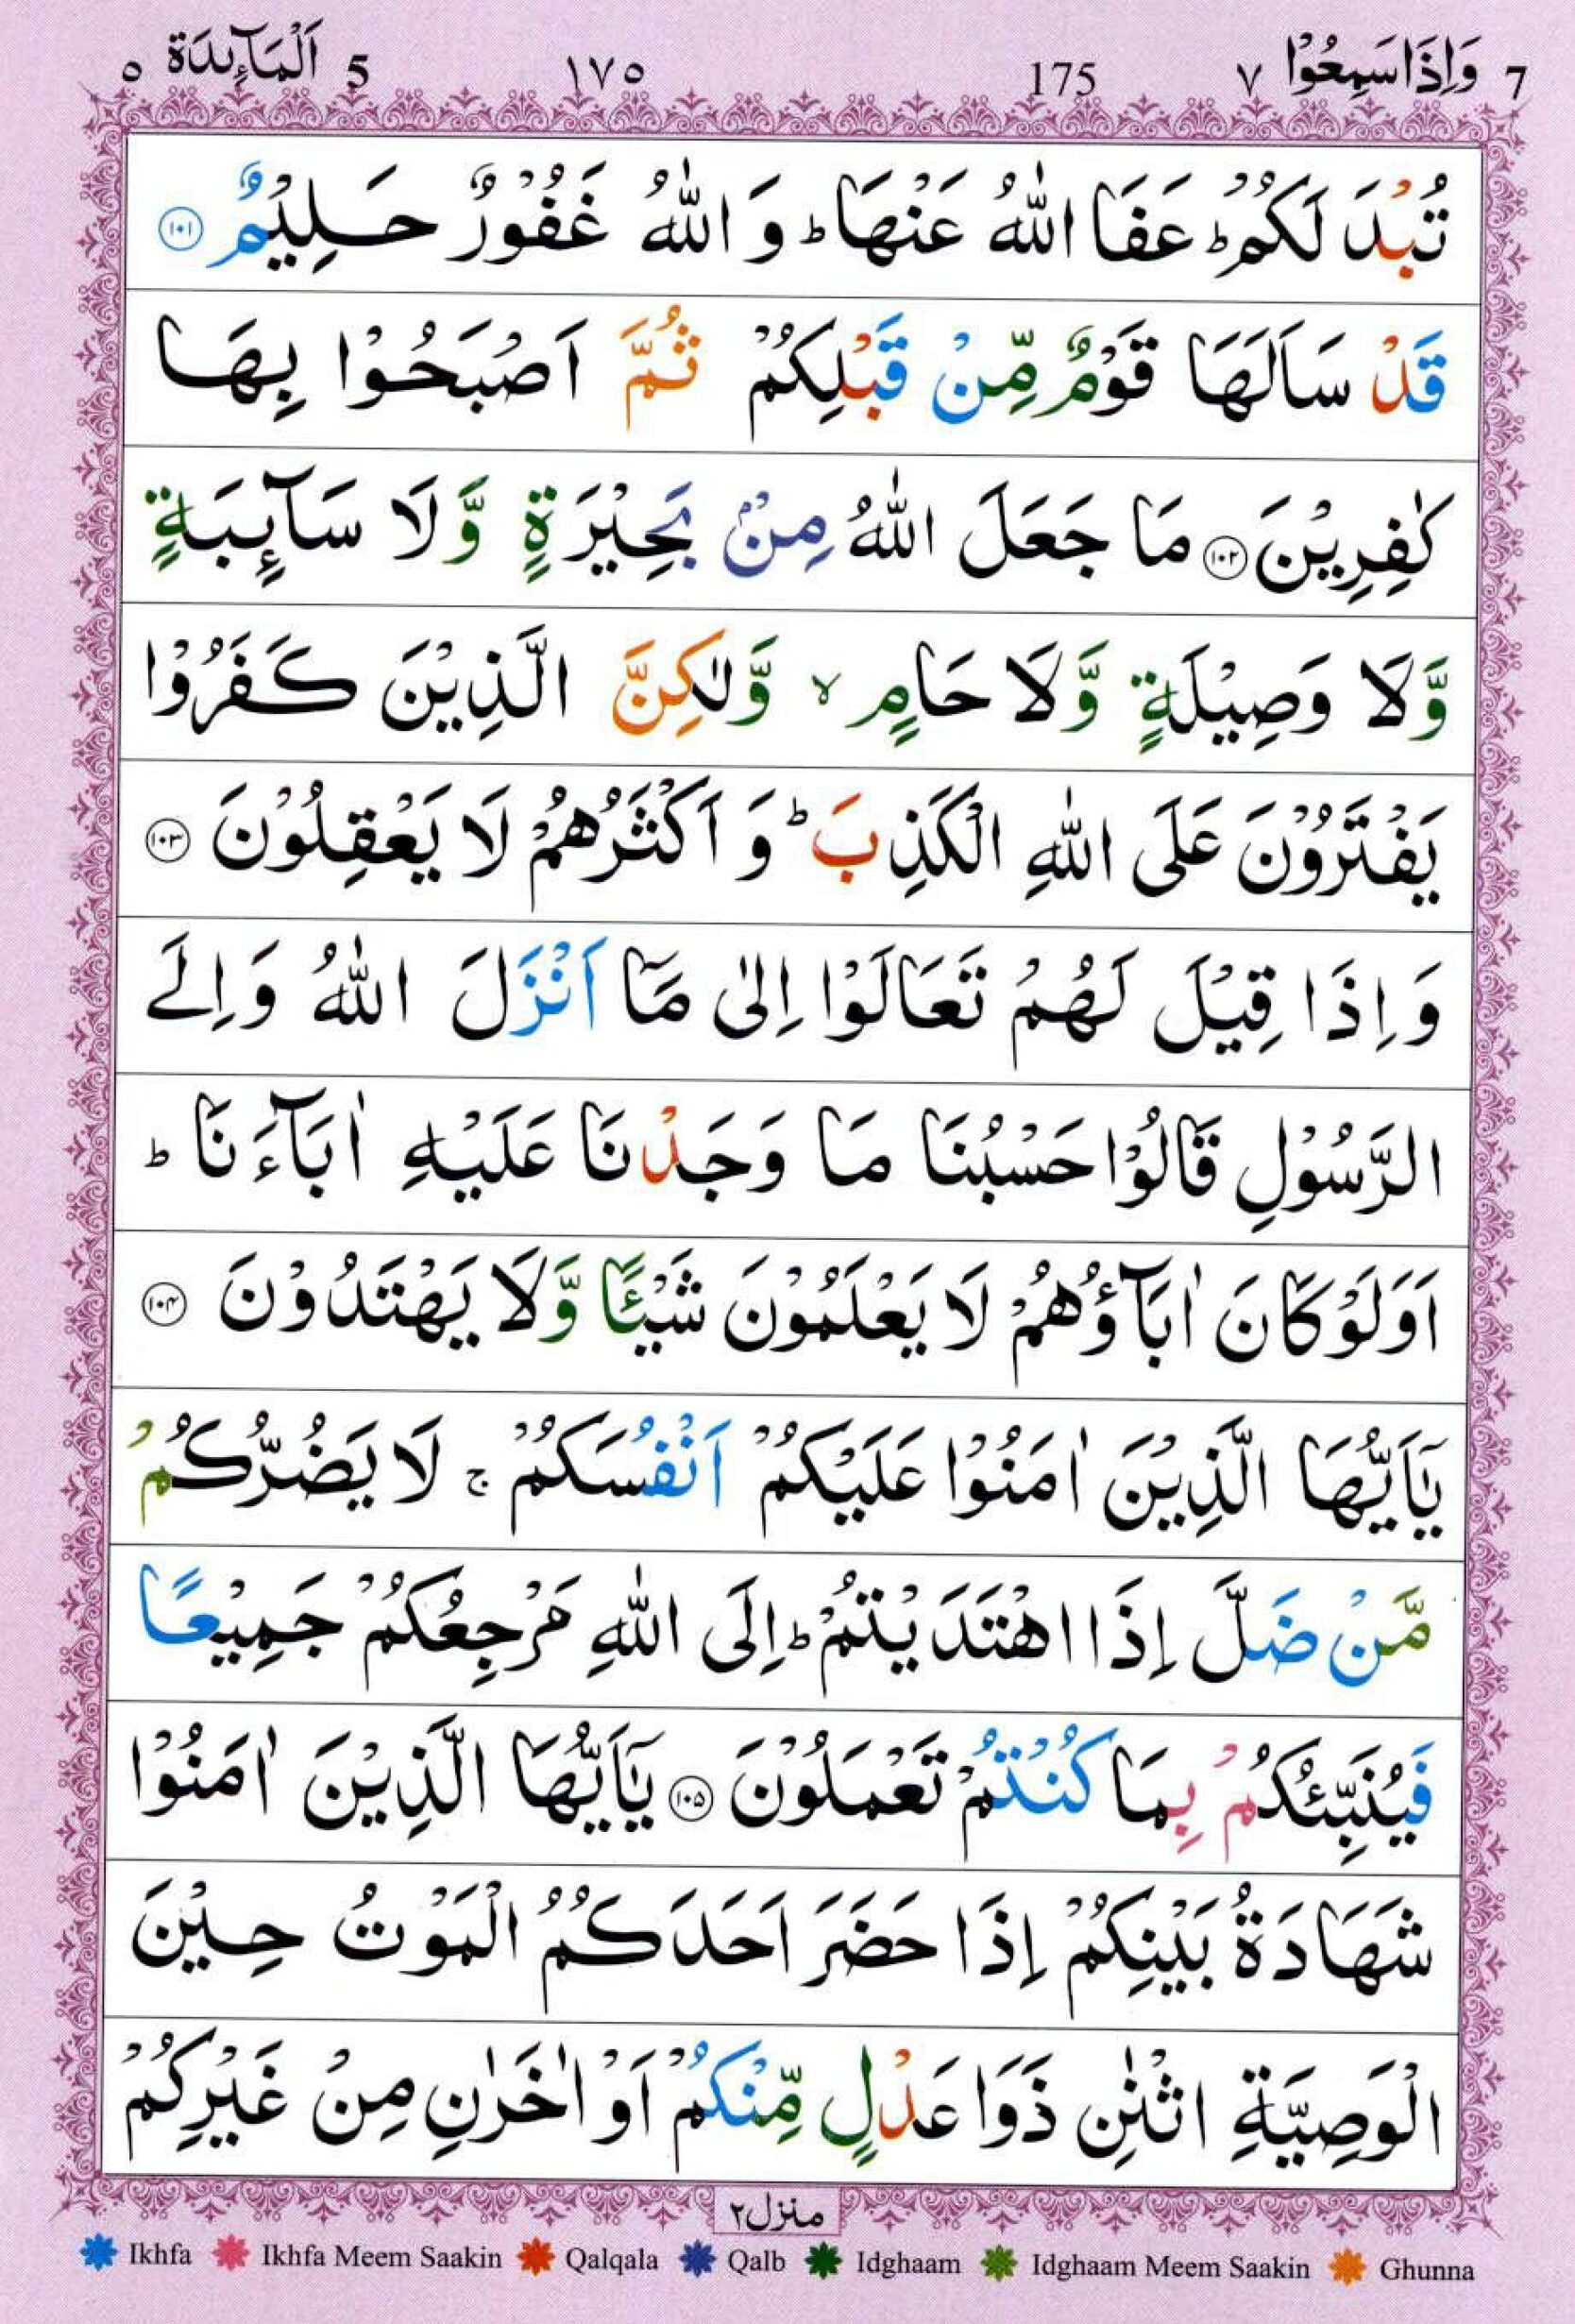 7 وَاِذَا سَمِعُوْا ٧ 175 ١٧٥ 5 اَلْمَآئِدَة ٥
تُبْدَ لَكُمْ ؕ عَفَا اللّٰهُ عَنْهَا ؕ وَ اللّٰهُ غَفُوْرٌ حَلِيْمٌ ﴿۱۰۱﴾
قَدْ سَاَلَهَا قَوْمٌ مِّنْ قَبْلِكُمْ ثُمَّ اَصْبَحُوْا بِهَا
كٰفِرِيْنَ ﴿۱۰۲﴾ مَا جَعَلَ اللّٰهُ مِنْۢ بَحِيْرَةٍ وَّلَا سَآئِبَةٍ
وَّلَا وَصِيْلَةٍ وَّلَا حَامٍ ۙ وَّلٰكِنَّ الَّذِيْنَ كَفَرُوْا
يَفْتَرُوْنَ عَلَى اللّٰهِ الْكَذِبَ ؕ وَ اَكْثَرُهُمْ لَا يَعْقِلُوْنَ ﴿۱۰۳﴾
وَاِذَا قِيْلَ لَهُمْ تَعَالَوْا اِلٰى مَآ اَنْزَلَ اللّٰهُ وَاِلَى
الرَّسُوْلِ قَالُوْا حَسْبُنَا مَا وَجَدْنَا عَلَيْهِ اٰبَآءَنَا ؕ
اَوَلَوْ كَانَ اٰبَآؤُهُمْ لَا يَعْلَمُوْنَ شَيْـًٔا وَّلَا يَهْتَدُوْنَ ﴿۱۰۴﴾
يٰۤاَيُّهَا الَّذِيْنَ اٰمَنُوْا عَلَيْكُمْ اَنْفُسَكُمْ ۚ لَا يَضُرُّكُمْ
مَّنْ ضَلَّ اِذَا اهْتَدَيْتُمْ ؕ اِلَى اللّٰهِ مَرْجِعُكُمْ جَمِيْعًا
فَيُنَبِّئُكُمْ بِمَا كُنْتُمْ تَعْمَلُوْنَ ﴿۱۰۵﴾ يٰۤاَيُّهَا الَّذِيْنَ اٰمَنُوْا
شَهَادَةُ بَيْنِكُمْ اِذَا حَضَرَ اَحَدَكُمُ الْمَوْتُ حِيْنَ
الْوَصِيَّةِ اثْنٰنِ ذَوَا عَدْلٍ مِّنْكُمْ اَوْ اٰخَرٰنِ مِنْ غَيْرِكُمْ
منزل۲
Ikhfa Ikhfa Meem Saakin Qalqala Qalb Idghaam Idghaam Meem Saakin Ghunna